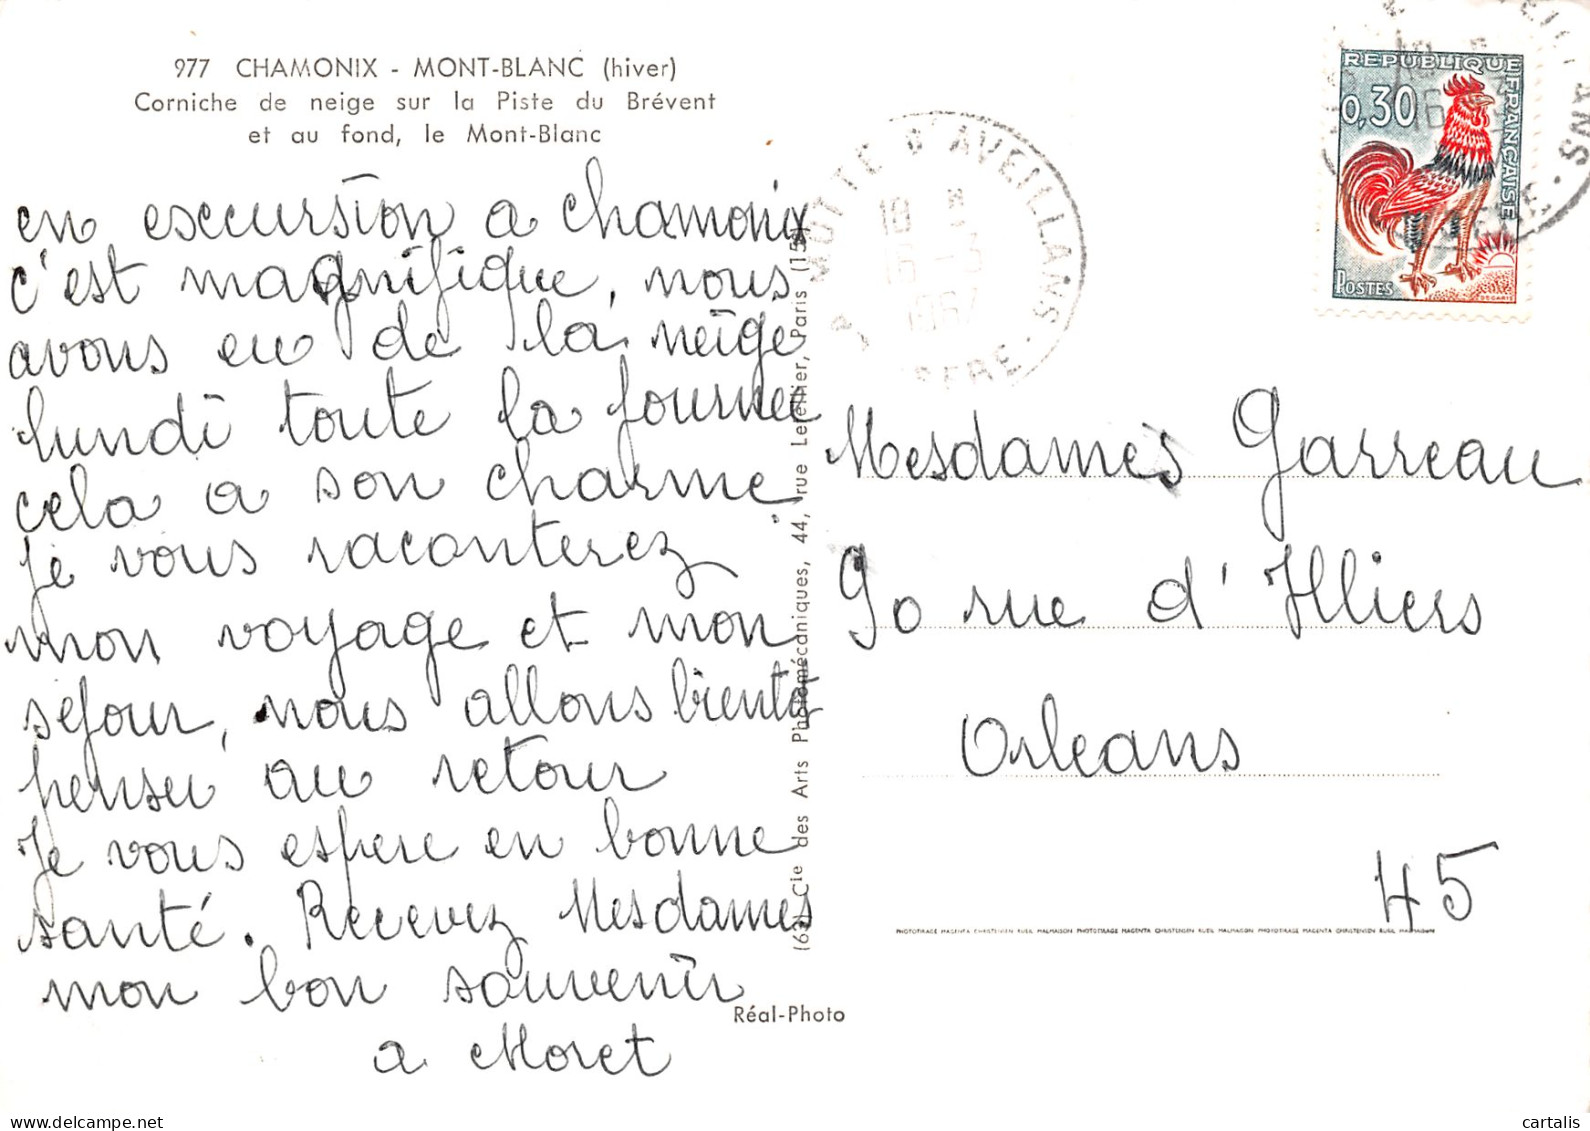 977 CHAMONIX - MONT-BLANC (hiver)
Corniche de neige sur la Piste du Brévent
et au fond, le Mont-Blanc
en excursion a chamonix
c'est magnifique, nous
avons eu de la neige
lundi toute la journee
cela a son charme
Je vous raconterez
mon voyage et mon
sejour, nous allons bientot
penser au retour
Je vous espere en bonne
santé. Recevez Mesdames
mon bon souvenir
a Moret
Cie des Arts Photomécaniques, 44, rue Letellier, Paris (15
Réal-Photo
MOTTE D'AVEILLANS
ISERE
18
16 -3
REPUBLIQUE FRANÇAISE
0,30
POSTES
DECARIS
Mesdames Garreau
90 rue d'Illiers
Orleans
45
PHOTOTIRAGE MAGENTA CHRISTENSEN RUEIL MALMAISON PHOTOTIRAGE MAGENTA CHRISTENSEN RUEIL MALMAISON PHOTOTIRAGE MAGENTA CHRISTENSEN RUEIL MALMAISON
cartalis